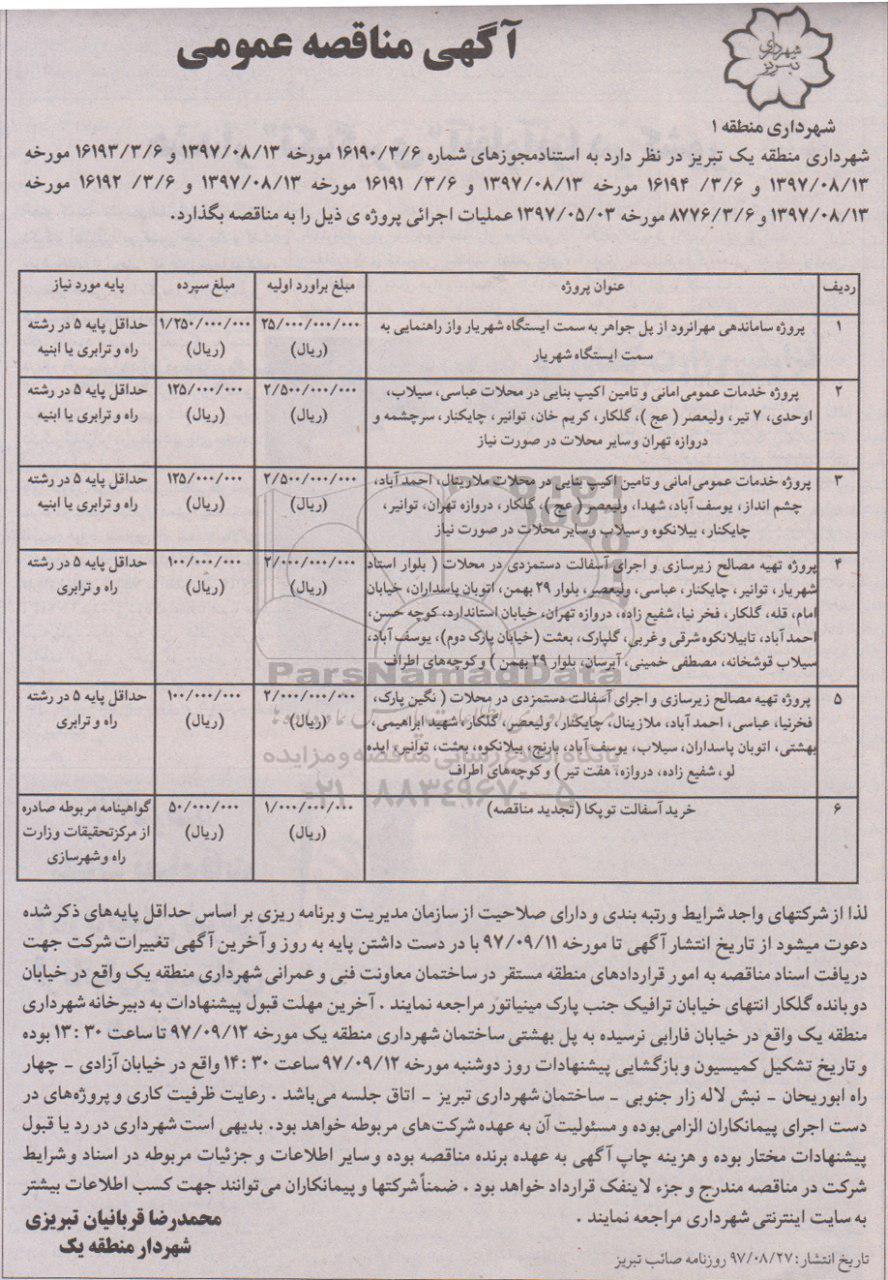 آگهی مناقصه عمومی
شهرداری تبریز
شهرداری منطقه ۱
شهرداری منطقه یک تبریز در نظر دارد به استنادمجوزهای شماره ۱۶۱۹۰/۳/۶ مورخه ۱۳۹۷/۰۸/۱۳ و ۱۶۱۹۳/۳/۶ مورخه
۱۳۹۷/۰۸/۱۳ و ۱۶۱۹۴ /۳/۶ مورخه ۱۳۹۷/۰۸/۱۳ و ۱۶۱۹۱ /۳/۶ مورخه ۱۳۹۷/۰۸/۱۳ و ۱۶۱۹۲ /۳/۶ مورخه
۱۳۹۷/۰۸/۱۳ و ۸۷۷۶/۳/۶ مورخه ۱۳۹۷/۰۵/۰۳ عملیات اجرائی پروژه ی ذیل را به مناقصه بگذارد.
ردیف عنوان پروژه مبلغ براورد اولیه مبلغ سپرده پایه مورد نیاز
۱ پروژه ساماندهی مهرانرود از پل جواهر به سمت ایستگاه شهریار واز راهنمایی به ۲۵/۰۰۰/۰۰۰/۰۰۰ ۱/۲۵۰/۰۰۰/۰۰۰ حداقل پایه ۵ در رشته
سمت ایستگاه شهریار (ریال) (ریال) راه و ترابری یا ابنیه
۲ پروژه خدمات عمومی‌امانی و تامین اکیپ بنایی در محلات عباسی، سیلاب، ۲/۵۰۰/۰۰۰/۰۰۰ ۱۲۵/۰۰۰/۰۰۰ حداقل پایه ۵ در رشته
اوحدی، ۷ تیر، ولیعصر ( عج )، گلکار، کریم خان، توانیر، چایکنار، سرچشمه و (ریال) (ریال) راه و ترابری یا ابنیه
دروازه تهران وسایر محلات در صورت نیاز
۳ پروژه خدمات عمومی‌امانی و تامین اکیپ بنایی در محلات ملازینال، احمد آباد، ۲/۵۰۰/۰۰۰/۰۰۰ ۱۲۵/۰۰۰/۰۰۰ حداقل پایه ۵ در رشته
چشم انداز، یوسف آباد، شهدا، ولیعصر ( عج )، گلکار، دروازه تهران، توانیر، (ریال) (ریال) راه و ترابری یا ابنیه
چایکنار، بیلانکوه وسیلاب وسایر محلات در صورت نیاز
۴ پروژه تهیه مصالح زیرسازی و اجرای آسفالت دستمزدی در محلات ( بلوار استاد ۲/۰۰۰/۰۰۰/۰۰۰ ۱۰۰/۰۰۰/۰۰۰ حداقل پایه ۵ در رشته
شهریار، توانیر، چایکنار، عباسی، ولیعصر، بلوار ۲۹ بهمن، اتوبان پاسداران، خیابان (ریال) (ریال) راه و ترابری
امام، قله، گلکار، فخر نیا، شفیع زاده، دروازه تهران، خیابان استاندارد، کوچه حسن،
احمد آباد، تابیلانکوه شرقی و غربی، گلپارک، بعثت (خیابان پارک دوم)، یوسف آباد،
سیلاب قوشخانه، مصطفی خمینی، آبرسان، بلوار ۲۹ بهمن ) و کوچه‌های اطراف
۵ پروژه تهیه مصالح زیرسازی و اجرای آسفالت دستمزدی در محلات ( نگین پارک، ۲/۰۰۰/۰۰۰/۰۰۰ ۱۰۰/۰۰۰/۰۰۰ حداقل پایه ۵ در رشته
فخرنیا، عباسی، احمد آباد، ملازینال، چایکنار، ولیعصر، گلکار، شهید ابراهیمی، (ریال) (ریال) راه و ترابری
بهشتی، اتوبان پاسداران، سیلاب، یوسف آباد، بارنج، بیلانکوه، بعثت، توانیر، ایده
لو، شفیع زاده، دروازه، هفت تیر ) و کوچه‌های اطراف
۶ خرید آسفالت توپکا (تجدید مناقصه) ۱/۰۰۰/۰۰۰/۰۰۰ ۵۰/۰۰۰/۰۰۰ گواهینامه مربوطه صادره
(ریال) (ریال) از مرکزتحقیقات وزارت
راه وشهرسازی
ParsNamadData
پایگاه اطلاع رسانی مناقصه و مزایده
۰۲۱-۸۸۳۴۹۶۷۰-۵
لذا از شرکتهای واجد شرایط و رتبه بندی و دارای صلاحیت از سازمان مدیریت و برنامه ریزی بر اساس حداقل پایه‌های ذکر شده
دعوت میشود از تاریخ انتشار آگهی تا مورخه ۹۷/۰۹/۱۱ با در دست داشتن پایه به روز و آخرین آگهی تغییرات شرکت جهت
دریافت اسناد مناقصه به امور قراردادهای منطقه مستقر در ساختمان معاونت فنی و عمرانی شهرداری منطقه یک واقع در خیابان
دو بانده گلکار انتهای خیابان ترافیک جنب پارک مینیاتور مراجعه نمایند . آخرین مهلت قبول پیشنهادات به دبیرخانه شهرداری
منطقه یک واقع در خیابان فارابی نرسیده به پل بهشتی ساختمان شهرداری منطقه یک مورخه ۹۷/۰۹/۱۲ تا ساعت ۳۰ : ۱۳ بوده
و تاریخ تشکیل کمیسیون و بازگشایی پیشنهادات روز دوشنبه مورخه ۹۷/۰۹/۱۲ ساعت ۳۰ : ۱۴ واقع در خیابان آزادی - چهار
راه ابوریحان - نبش لاله زار جنوبی - ساختمان شهرداری تبریز - اتاق جلسه می‌باشد . رعایت ظرفیت کاری و پروژه‌های در
دست اجرای پیمانکاران الزامی‌بوده و مسئولیت آن به عهده شرکت‌های مربوطه خواهد بود. بدیهی است شهرداری در رد یا قبول
پیشنهادات مختار بوده و هزینه چاپ آگهی به عهده برنده مناقصه بوده و سایر اطلاعات و جزئیات مربوطه در اسناد و شرایط
شرکت در مناقصه مندرج و جزء لاینفک قرارداد خواهد بود . ضمناً شرکتها و پیمانکاران می‌توانند جهت کسب اطلاعات بیشتر
به سایت اینترنتی شهرداری مراجعه نمایند .
محمدرضا قربانیان تبریزی
شهردار منطقه یک
تاریخ انتشار: ۹۷/۰۸/۲۷ روزنامه صائب تبریز